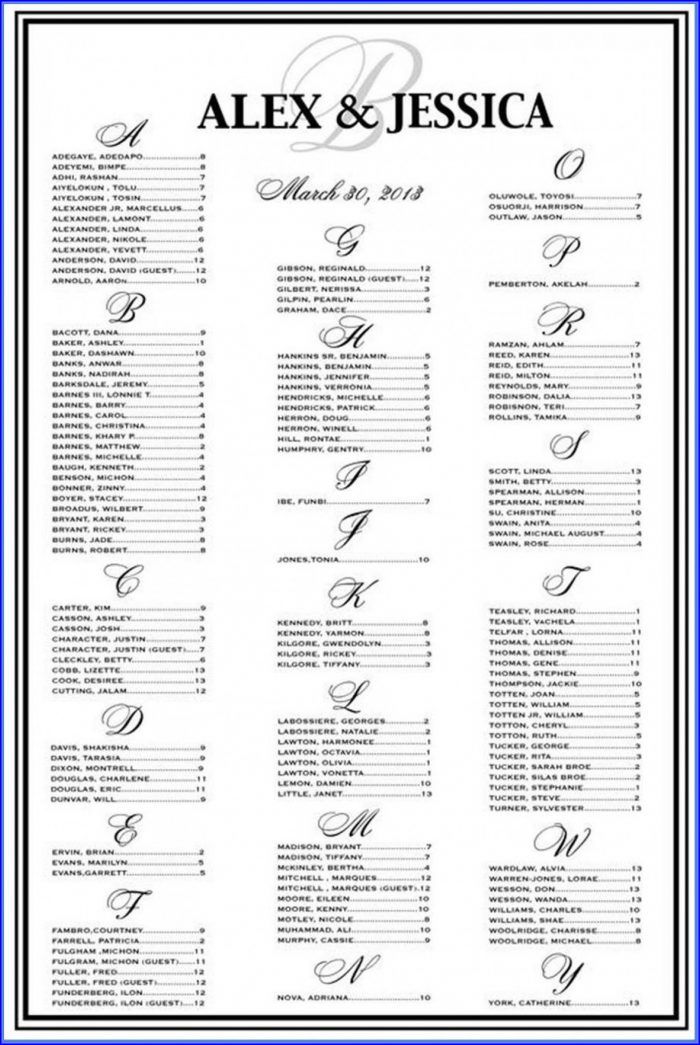 B
ALEX & JESSICA
March 30, 2013
A
ADEGAYE, ADEDAPO.....................8
ADEYEMI, BIMPE..........................8
ADHI, RASHAN.............................7
AIYELOKUN , TOLU.......................7
AIYELOKUN , TOSIN......................7
ALEXANDER JR, MARCELLUS.....6
ALEXANDER, LAMONT.................6
ALEXANDER, LINDA.....................6
ALEXANDER, NIKOLE...................6
ALEXANDER, YEVETT...................6
ANDERSON, DAVID.....................12
ANDERSON, DAVID (GUEST)......12
ARNOLD, AARON........................10
B
BACOTT, DANA.............................9
BAKER, ASHLEY............................1
BAKER, DASHAWN......................10
BANKS, ANWAR............................8
BANKS, NADIRAH.........................8
BARKSDALE, JEREMY...................5
BARNES III, LONNIE T..................4
BARNES, BARRY...........................4
BARNES, CAROL...........................4
BARNES, CHRISTINA.....................4
BARNES, KHARY P........................8
BARNES, MATTHEW......................2
BARNES, MICHELLE......................4
BAUGH, KENNETH........................2
BENSON, MICHON........................4
BONNER, ZINNY...........................4
BOYER, STACEY..........................12
BROADUS, WILBERT.....................9
BRYANT, KAREN...........................3
BRYANT, RICKEY...........................3
BURNS, JADE...............................8
BURNS, ROBERT...........................8
C
CARTER, KIM................................9
CASSON, ASHLEY.........................3
CASSON, JOSH.............................3
CHARACTER, JUSTIN....................7
CHARACTER, JUSTIN (GUEST)......7
CLECKLEY, BETTY.........................6
COBB, LIZETTE...........................13
COOK, DESIREE..........................13
CUTTING, JALAM.........................12
D
DAVIS, SHAKISHA.........................9
DAVIS, TARASIA...........................9
DIXON, MONTRELL.......................9
DOUGLAS, CHARLENE.................11
DOUGLAS, ERIC..........................11
DUNVAR, WILL.............................9
E
ERVIN, BRIAN...............................2
EVANS, MARILYN..........................5
EVANS,GARRETT..........................5
F
FAMBRO,COURTNEY.....................9
FARRELL, PATRICIA......................2
FULGHAM ,MICHON....................11
FULGRAM, MICHON (GUEST)......11
FULLER, FRED............................12
FULLER, FRED (GUEST)...............12
FUNDERBERG, ILON...................12
FUNDERBERG, ILON (GUEST)....12
G
GIBSON, REGINALD....................12
GIBSON, REGINALD (GUEST).....12
GILBERT, NERISSA.......................3
GILPIN, PEARLIN..........................6
GRAHAM, DACE............................2
H
HANKINS SR, BENJAMIN..............5
HANKINS, BENJAMIN....................5
HANKINS, JENNIFER.....................5
HANKINS, VERRONIA....................5
HENDRICKS, MICHELLE................6
HENDRICKS, PATRICK...................6
HERRON, DOUG............................6
HERRON, WINELL.........................6
HILL, RONTAE..............................1
HUMPHRY, GENTRY.....................10
I
IBE, FUNBI...................................7
J
JONES,TONIA.............................10
K
KENNEDY, BRITT..........................8
KENNEDY, YARMON......................8
KILGORE, GWENDOLYN................3
KILGORE, RICKEY.........................3
KILGORE, TIFFANY........................3
L
LABOSSIERE, GEORGES...............2
LABOSSIERE, NATALIE..................2
LAWTON, HARMONEE...................1
LAWTON, OCTAVIA........................1
LAWTON, OLIVIA...........................1
LAWTON, VONETTA.......................1
LEMON, DAMIEN.........................10
LITTLE, JANET............................13
M
MADISON, BRYANT........................7
MADISON, TIFFANY.......................7
MCKINLEY, BERTHA......................4
MITCHELL , MARQUES................12
MITCHELL , MARQUES (GUEST).12
MOORE, EILEEN..........................10
MOORE, KENNY...........................10
MOTLEY, NICOLE..........................8
MUHAMMAD, ALI.........................10
MURPHY, CASSIE.........................9
N
NOVA, ADRIANA..........................10
O
OLUWOLE, TOYOSI.......................7
OSUORJI, HARRISON...................7
OUTLAW, JASON...........................5
P
PEMBERTON, AKELAH..................2
R
RAMZAN, AHLAM..........................7
REED, KAREN.............................13
REID, EDITH................................11
REID, MILTON.............................11
REYNOLDS, MARY........................9
ROBINSON, DALIA......................13
ROBISNON, TERI..........................7
ROLLINS, TAMIKA.........................9
S
SCOTT, LINDA............................13
SMITH, BETTY..............................3
SPEARMAN, ALLISON...................1
SPEARMAN, HERMAN....................1
SU, CHRISTINE...........................10
SWAIN, ANITA..............................4
SWAIN, MICHAEL AUGUST............4
SWAIN, ROSE...............................4
T
TEASLEY, RICHARD......................1
TEASLEY, VACHELA......................1
TELFAR , LORNA.........................11
THOMAS, ALLISON.....................11
THOMAS, DENISE.......................11
THOMAS, GENE..........................11
THOMAS, STEPHEN......................9
THOMPSON, JACKIE...................10
TOTTEN, JOAN.............................5
TOTTEN, WILLIAM........................5
TOTTEN JR, WILLIAM...................5
TOTTON, CHERYL.........................3
TOTTON, RUTH.............................5
TUCKER, GEORGE........................3
TUCKER, RITA..............................3
TUCKER, SARAH BROE.................2
TUCKER, SILAS BROE...................2
TUCKER, STEPHANIE....................1
TUCKER, STEVE............................2
TURNER, SYLVESTER..................13
W
WARDLAW, ALVIA.......................13
WARREN-JONES, LORAE............11
WESSON, DON............................13
WESSON, WANDA.......................13
WILLIAMS, CHARLES..................10
WILLIAMS, SHAE........................13
WOOLRIDGE, CHARISSE...............8
WOOLRIDGE, MICHAEL.................8
Y
YORK, CATHERINE......................13